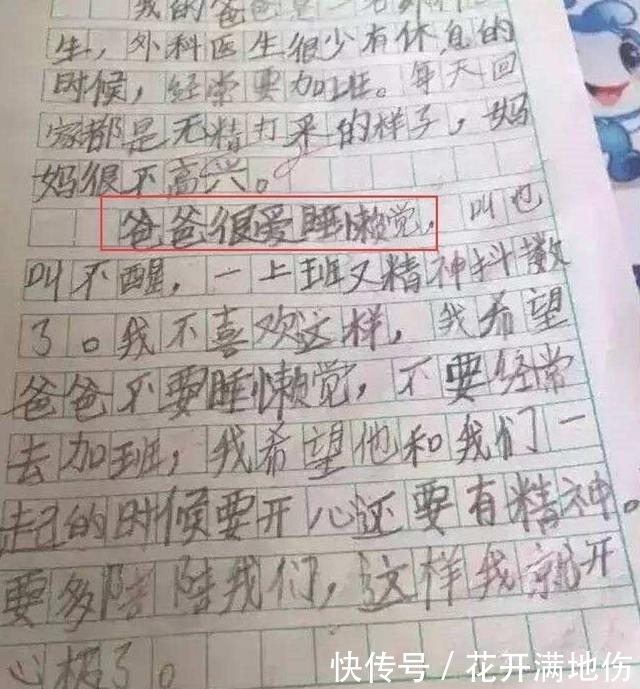 我的爸爸是一名外科医
生，外科医生很少有休息的
时候，经常要加班。每天回
家都是无精打采的样子，妈
妈很不高兴。
爸爸很爱睡懒觉，叫也
叫不醒，一上班又精神抖擞
了。我不喜欢这样，我希望
爸爸不要睡懒觉，不要经常
去加班，我希望他和我们一
起的时候要开心还要有精神。
要多陪陪我们，这样我就开
心极了。
快传号 / 花开满地伤